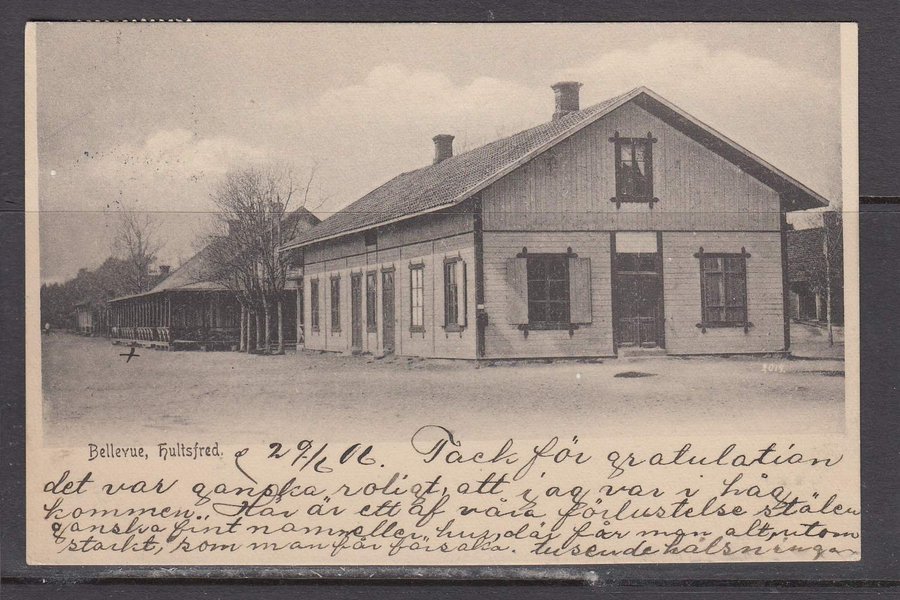 2014
Bellevue, Hultsfred. d 29/6 06. Tack för gratulation
det var ganska roligt, att jag var i håg
kommen. Här är ett af våra förlustelse ställen
ganska fint namn eller hur, där får man allt, utom
starkt, som man får försaka. tusende hälsningar